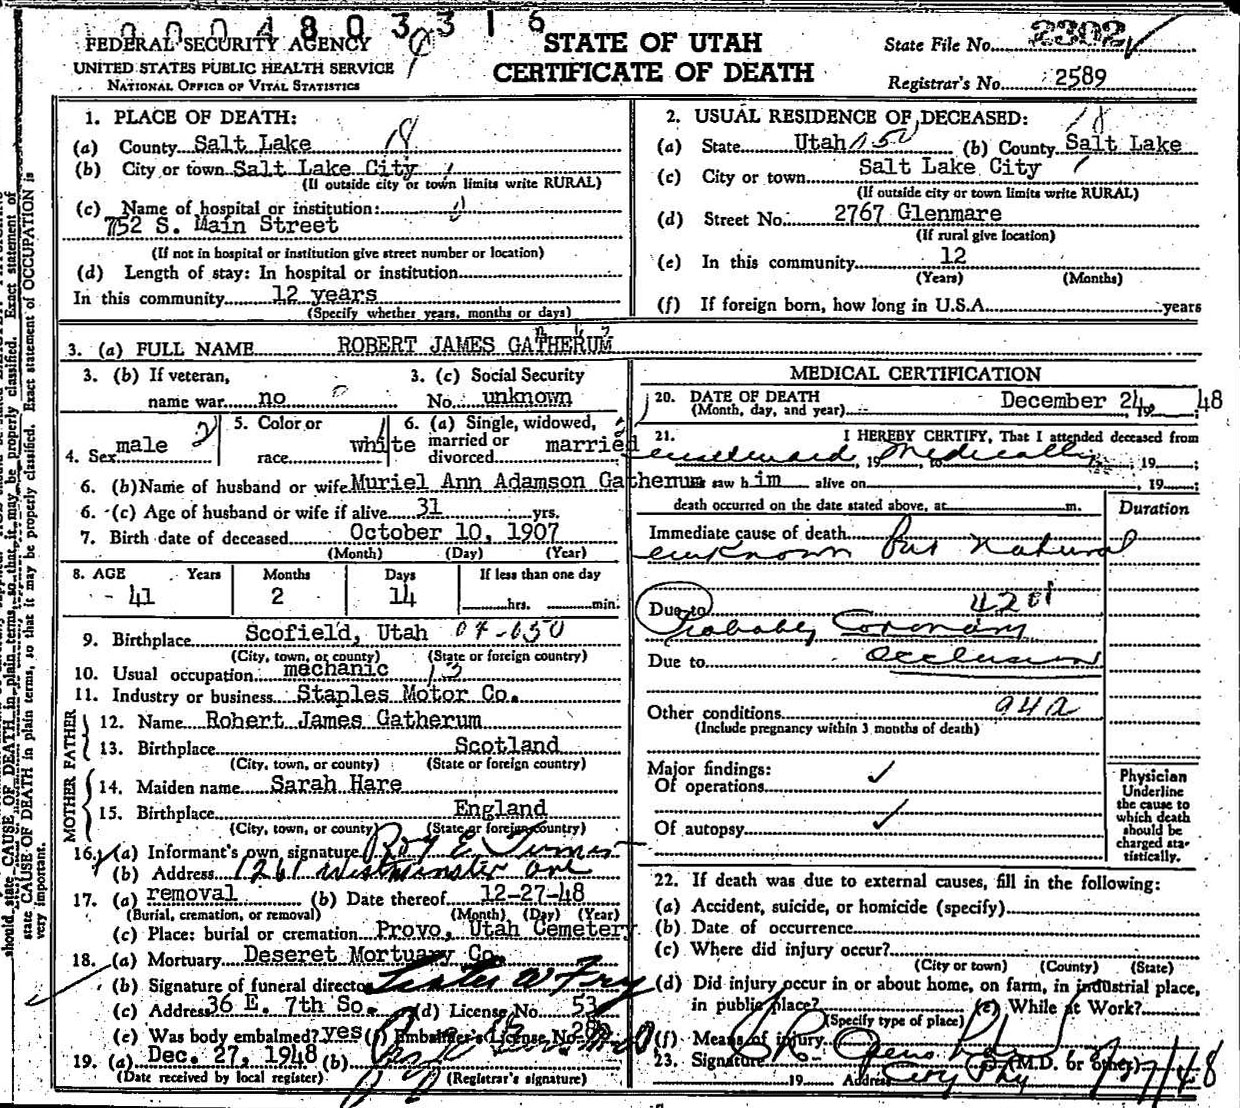 0004803316
FEDERAL SECURITY AGENCY
UNITED STATES PUBLIC HEALTH SERVICE
NATIONAL OFFICE OF VITAL STATISTICS
STATE OF UTAH
CERTIFICATE OF DEATH
State File No. 2302
Registrar's No. 2589
1. PLACE OF DEATH:
(a) County Salt Lake 18
(b) City or town Salt Lake City
(If outside city or town limits write RURAL)
(c) Name of hospital or institution:
752 S. Main Street
(If not in hospital or institution give street number or location)
(d) Length of stay: In hospital or institution
In this community 12 years
(Specify whether years, months or days)
2. USUAL RESIDENCE OF DECEASED: 18
(a) State Utah 150 (b) County Salt Lake
(c) City or town Salt Lake City
(If outside city or town limits write RURAL)
(d) Street No. 2767 Glenmare
(If rural give location)
(e) In this community 12
(Years) (Months)
(f) If foreign born, how long in U.S.A. years
3. (a) FULL NAME ROBERT JAMES GATHERUM
3. (b) If veteran, name war no
3. (c) Social Security No. unknown
4. Sex male 2
5. Color or race white
6. (a) Single, widowed, married or divorced married
6. (b) Name of husband or wife Muriel Ann Adamson Gatherum
6. (c) Age of husband or wife if alive 31 yrs.
7. Birth date of deceased October 10, 1907
(Month) (Day) (Year)
8. AGE Years Months Days If less than one day
41 2 14 hrs. min.
9. Birthplace Scofield, Utah 04-050
(City, town, or county) (State or foreign country)
10. Usual occupation mechanic 13
11. Industry or business Staples Motor Co.
FATHER
12. Name Robert James Gatherum
13. Birthplace Scotland
(City, town, or county) (State or foreign country)
MOTHER
14. Maiden name Sarah Hare
15. Birthplace England
(City, town, or county) (State or foreign country)
16. (a) Informant's own signature Roy E. Turner
(b) Address 1261 Westminster Ave
17. (a) removal (b) Date thereof 12-27-48
(Burial, cremation, or removal) (Month) (Day) (Year)
(c) Place: burial or cremation Provo, Utah Cemetery
18. (a) Mortuary Deseret Mortuary Co.
(b) Signature of funeral director W Fry
(c) Address 36 E. 7th So. (d) License No. 53
(e) Was body embalmed? yes (f) Embalmer's License No. 28
19. (a) Dec. 27, 1948 (b)
(Date received by local register) (Registrar's signature)
MEDICAL CERTIFICATION
20. DATE OF DEATH
(Month, day, and year) December 24, 19 48
21. I HEREBY CERTIFY, That I attended deceased from
unattended, 19 medically, 19 ;
saw him alive on , 19 ;
death occurred on the date stated above, at m.
Duration
Immediate cause of death
unknown but natural
Due to 4201
Probably Coronary
Due to occlusion
Other conditions 94a
(Include pregnancy within 3 months of death)
Major findings:
Of operations ✓
Of autopsy ✓
Physician
Underline
the cause to
which death
should be
charged sta-
tistically.
22. If death was due to external causes, fill in the following:
(a) Accident, suicide, or homicide (specify)
(b) Date of occurrence
(c) Where did injury occur?
(City or town) (County) (State)
(d) Did injury occur in or about home, on farm, in industrial place,
in public place? (e) While at Work?
(Specify type of place)
(f) Means of injury
23. Signature (M.D. or other)
19 Address City Phy 12/27/48
should state CAUSE OF DEATH in plain terms, so that it may be properly classified. Exact statement of
state CAUSE OF DEATH in plain terms, so that it may be properly classified. Exact statement of OCCUPATION is
very important.